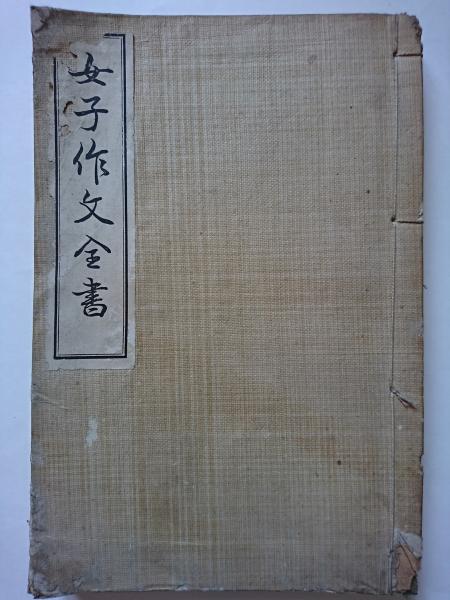 女子作文全書